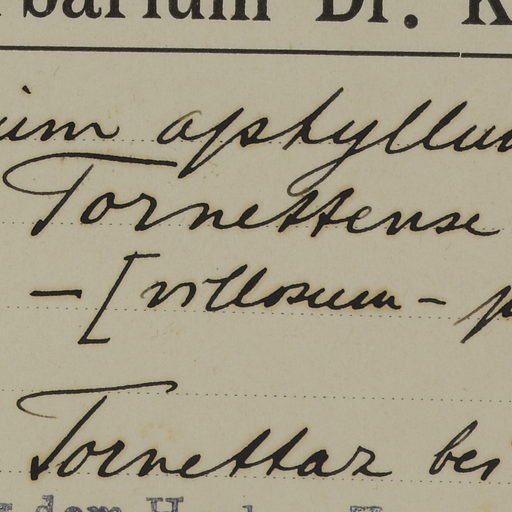 rbarium Dr. K
ium aphyllum
Tornettense
– [villosum – p
Tornettaz bei
dem H